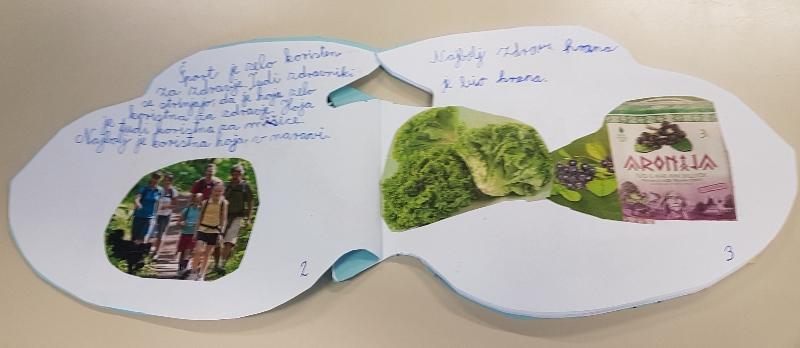 Šport je zelo koristen
za zdravje. Tudi zdravniki
se strinjajo, da je hoja zelo
koristna za zdravje. Hoja
je tudi koristna za mišice.
Najbolj je koristna hoja v naravi.
2
Najbolj zdrava hrana
je bio hrana.
3
ARONIJA
3